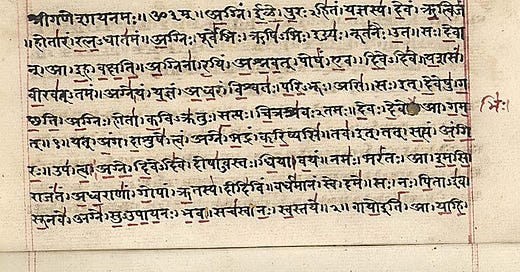 श्रीगणेशायनमः॥ॐ३म्॥अग्निं।ईळे।पुरःऽहितं।यज्ञस्य।देवं।ऋत्विजं
।होतारं।रत्नऽधातमं।अग्निः।पूर्वेभिः।ऋषिऽभिः।ईड्यः।नूतनैः।उत।सः।देवा
न्।आ।इह।वक्षति॥अग्निना।रयिं।अश्नवत्।पोषं।एव।दिवेऽदिवे।यशसं
वीरवत्ऽतमं।अग्ने।यं।यज्ञं।अध्वरं।विश्वतः।परिऽभूः।असि।सः।इत्।देवेषु।ग
छति।अग्निः।होता।कविऽक्रतुः।सत्यः।चित्रश्रवःऽतमः।देवः।देवे आ।गम
भिः।
त्।१।यत्।अंग।दाशुषे।त्वं।अग्ने।भद्रं।करिष्यसि।तव।इत्।तत्।सत्यं।अंगि
रः।उप।त्वा।अग्ने।दिवेऽदिवे।दोषाऽवस्तः।धिया।वयं।नमः।भरंतः।आ।इमसि
राजंतं।अध्वराणां।गोपां।ऋतस्य।दीदिविं।वर्धमानं।स्वे।दमे।सः।नः।पिताऽइव
सूनवे।अग्ने।सुऽउपायनः।भव।सचस्व।नः।स्वस्तये।२।वायोइति।आ।याहि।